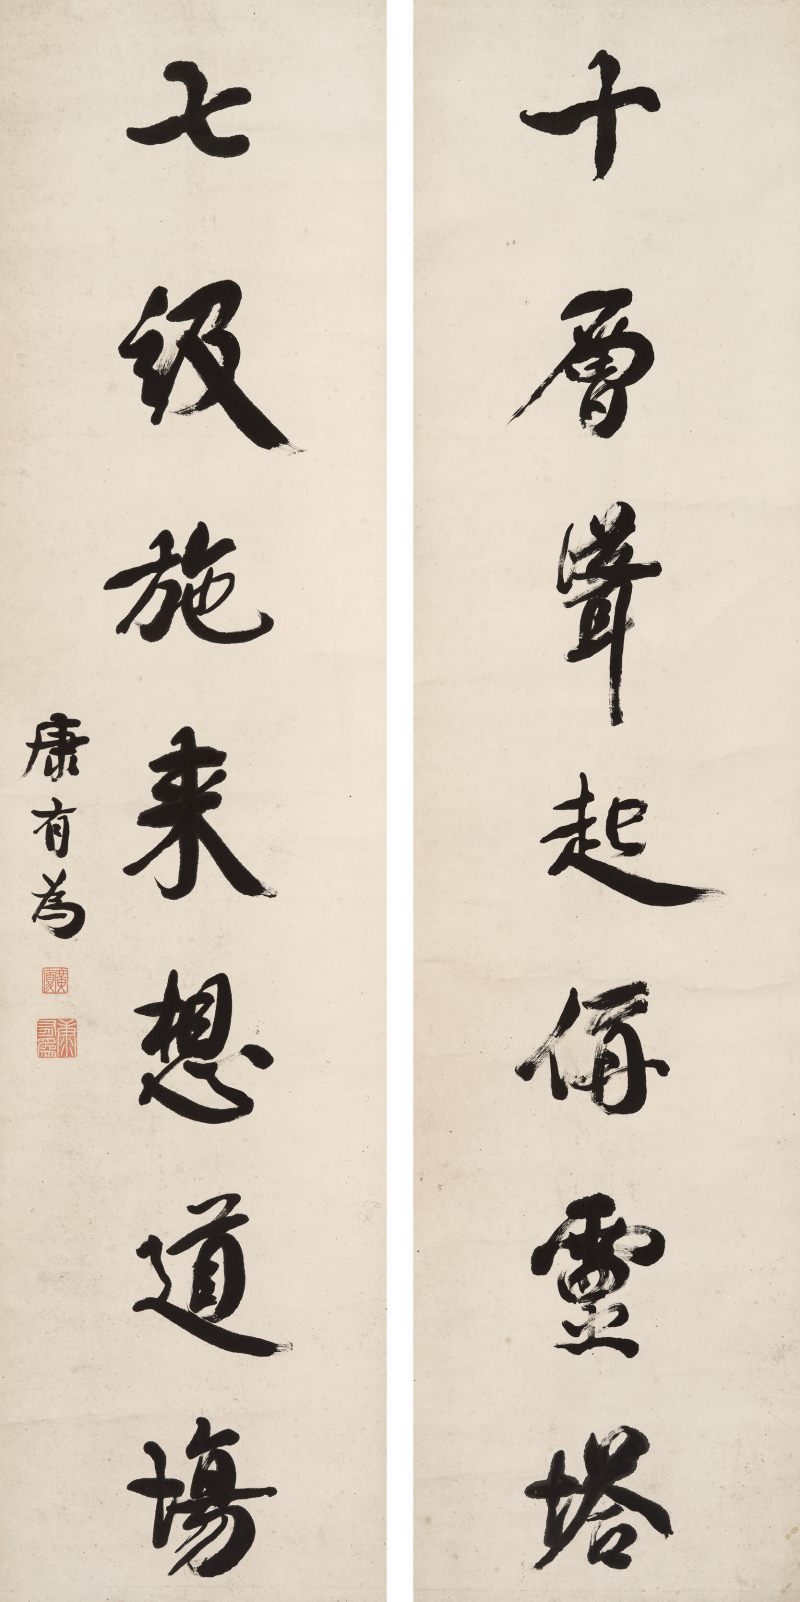 十層聳起俯靈塔
七級施来想道場
康有為